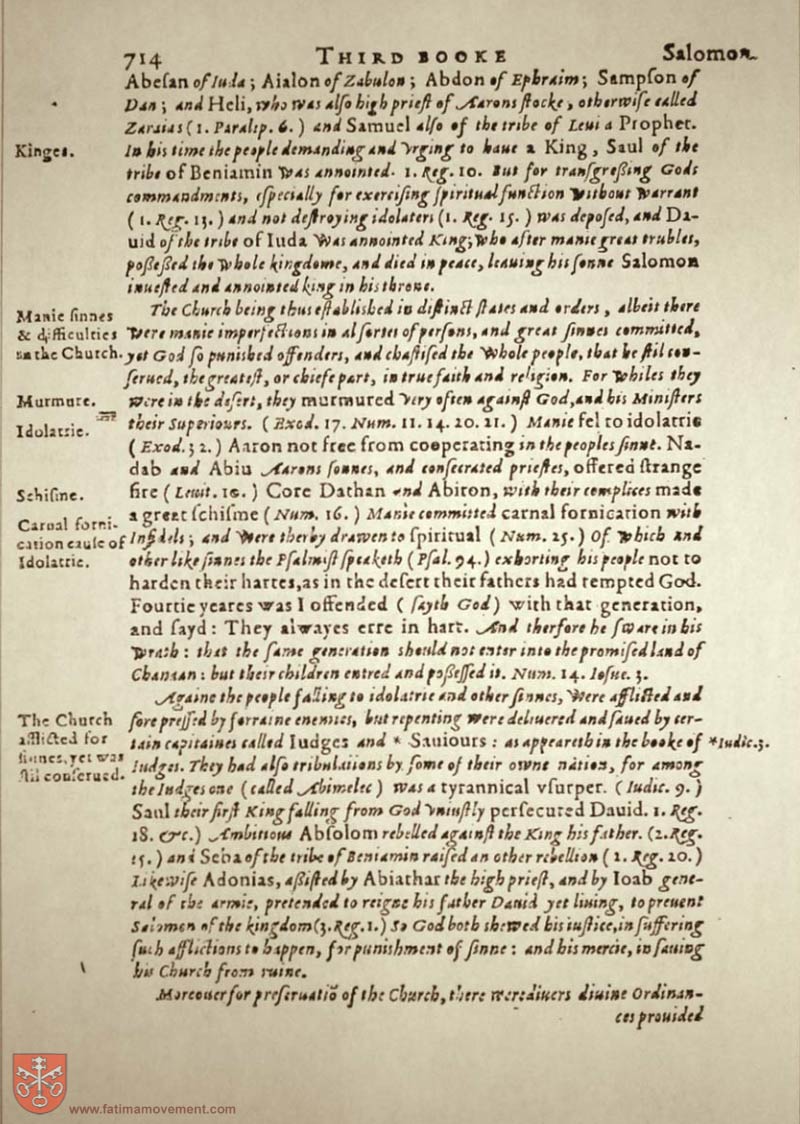 714 THIRD BOOKE Salomon
Abeſan of Iuda; Aialon of Zabulon; Abdon of Ephraim; Sampſon of
Dan; and Heli, who was alſo high prieſt of Aarons ſtocke, otherwiſe called
Zaraias (1. Paralip. 6.) and Samuel alſo of the tribe of Leui a Prophet.
Kinges.
In his time the people demanding and vrging to haue a King, Saul of the
tribe of Beniamin was annointed. 1. Reg. 10. But for tranſgreßing Gods
commandments, eſpecially for exerciſing ſpiritual function without warrant
(1. Reg. 13.) and not deſtroying idolaters (1. Reg. 15.) was depoſed, and Da-
uid of the tribe of Iuda was annointed King; who after manie great trubles,
poßeßed the whole kingdome, and died in peace, leauing his ſonne Salomon
inueſted and annointed king in his throne.
Manie ſinnes
& difficulties
in the Church.
The Church being thus eſtabliſhed in diſtinct ſtates and orders, albeit there
were manie imperfections in al ſortes of perſons, and great ſinnes committed,
yet God ſo puniſhed offenders, and chaſtiſed the whole people, that he ſtil con-
ſerued, the greateſt, or chiefe part, in true faith and religion. For whiles they
Murmure.
were in the deſert, they murmured very often againſt God, and his Miniſters
Idolatrie.
their Superiours. (Exod. 17. Num. 11. 14. 20. 21.) Manie fel to idolatrie
(Exod. 32.) Aaron not free from cooperating in the peoples ſinne. Na-
dab and Abiu Aarons ſonnes, and conſecrated prieſtes, offered ſtrange
Schiſme.
fire (Leuit. 10.) Core Dathan and Abiron, with their complices made
a great ſchiſme (Num. 16.) Manie committed carnal fornication with
Carnal forni-
cation cauſe of
Idolatrie.
Infidels; and were therby drawen to ſpiritual (Num. 25.) Of which and
other like ſinnes the Pſalmiſt ſpeaketh (Pſal. 94.) exhorting his people not to
harden their hartes, as in the deſert their fathers had tempted God.
Fourtie yeares was I offended (ſayth God) with that generation,
and ſayd: They alwayes erre in hart. And therfore he ſware in his
wrath: that the ſame generation should not enter into the promiſed land of
Chanaan: but their children entred and poßeſſed it. Num. 14. Ioſue. 3.
Againe the people falling to idolatrie and other ſinnes, were afflicted and
The Church
afflicted for
ſinnes, yet was
ſtil conſerued.
ſore preſſed by forraine enemies, but repenting were deliuered and ſaued by cer-
tain capitaines called Iudges and * Sauiours: as appeareth in the booke of
*Iudic.3.
Iudges. They had alſo tribulations by ſome of their owne nation, for among
the Iudges one (called Abimelec) was a tyrannical vſurper. (Iudic. 9.)
Saul their firſt King falling from God vniuſtly perſecuted Dauid. 1. Reg.
18. &c.) Ambitious Abſolom rebelled againſt the King his father. (2. Reg.
15.) and Seba of the tribe of Beniamin raiſed an other rebellion (2. Reg. 20.)
Likewiſe Adonias, aßiſted by Abiathar the high prieſt, and by Ioab gene-
ral of the armie, pretended to reigne his father Dauid yet liuing, to preuent
Salomon of the kingdom (3. Reg. 1.) So God both shewed his iuſtice, in ſuffering
ſuch afflictions to happen, for puniſhment of ſinne: and his mercie, in ſauing
his Church from ruine.
Moreouer for preſeruatiõ of the Church, there were diuers diuine Ordinan-
ces prouided
www.fatimamovement.com